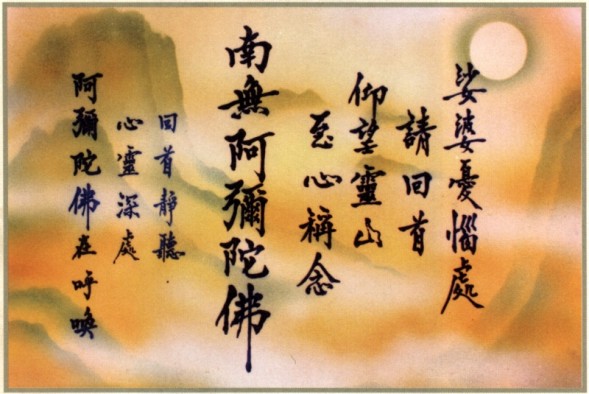 娑婆憂惱處
請回首
仰望靈山
至心稱念
南無阿彌陀佛
回首靜聽
心靈深處
阿彌陀佛在呼喚